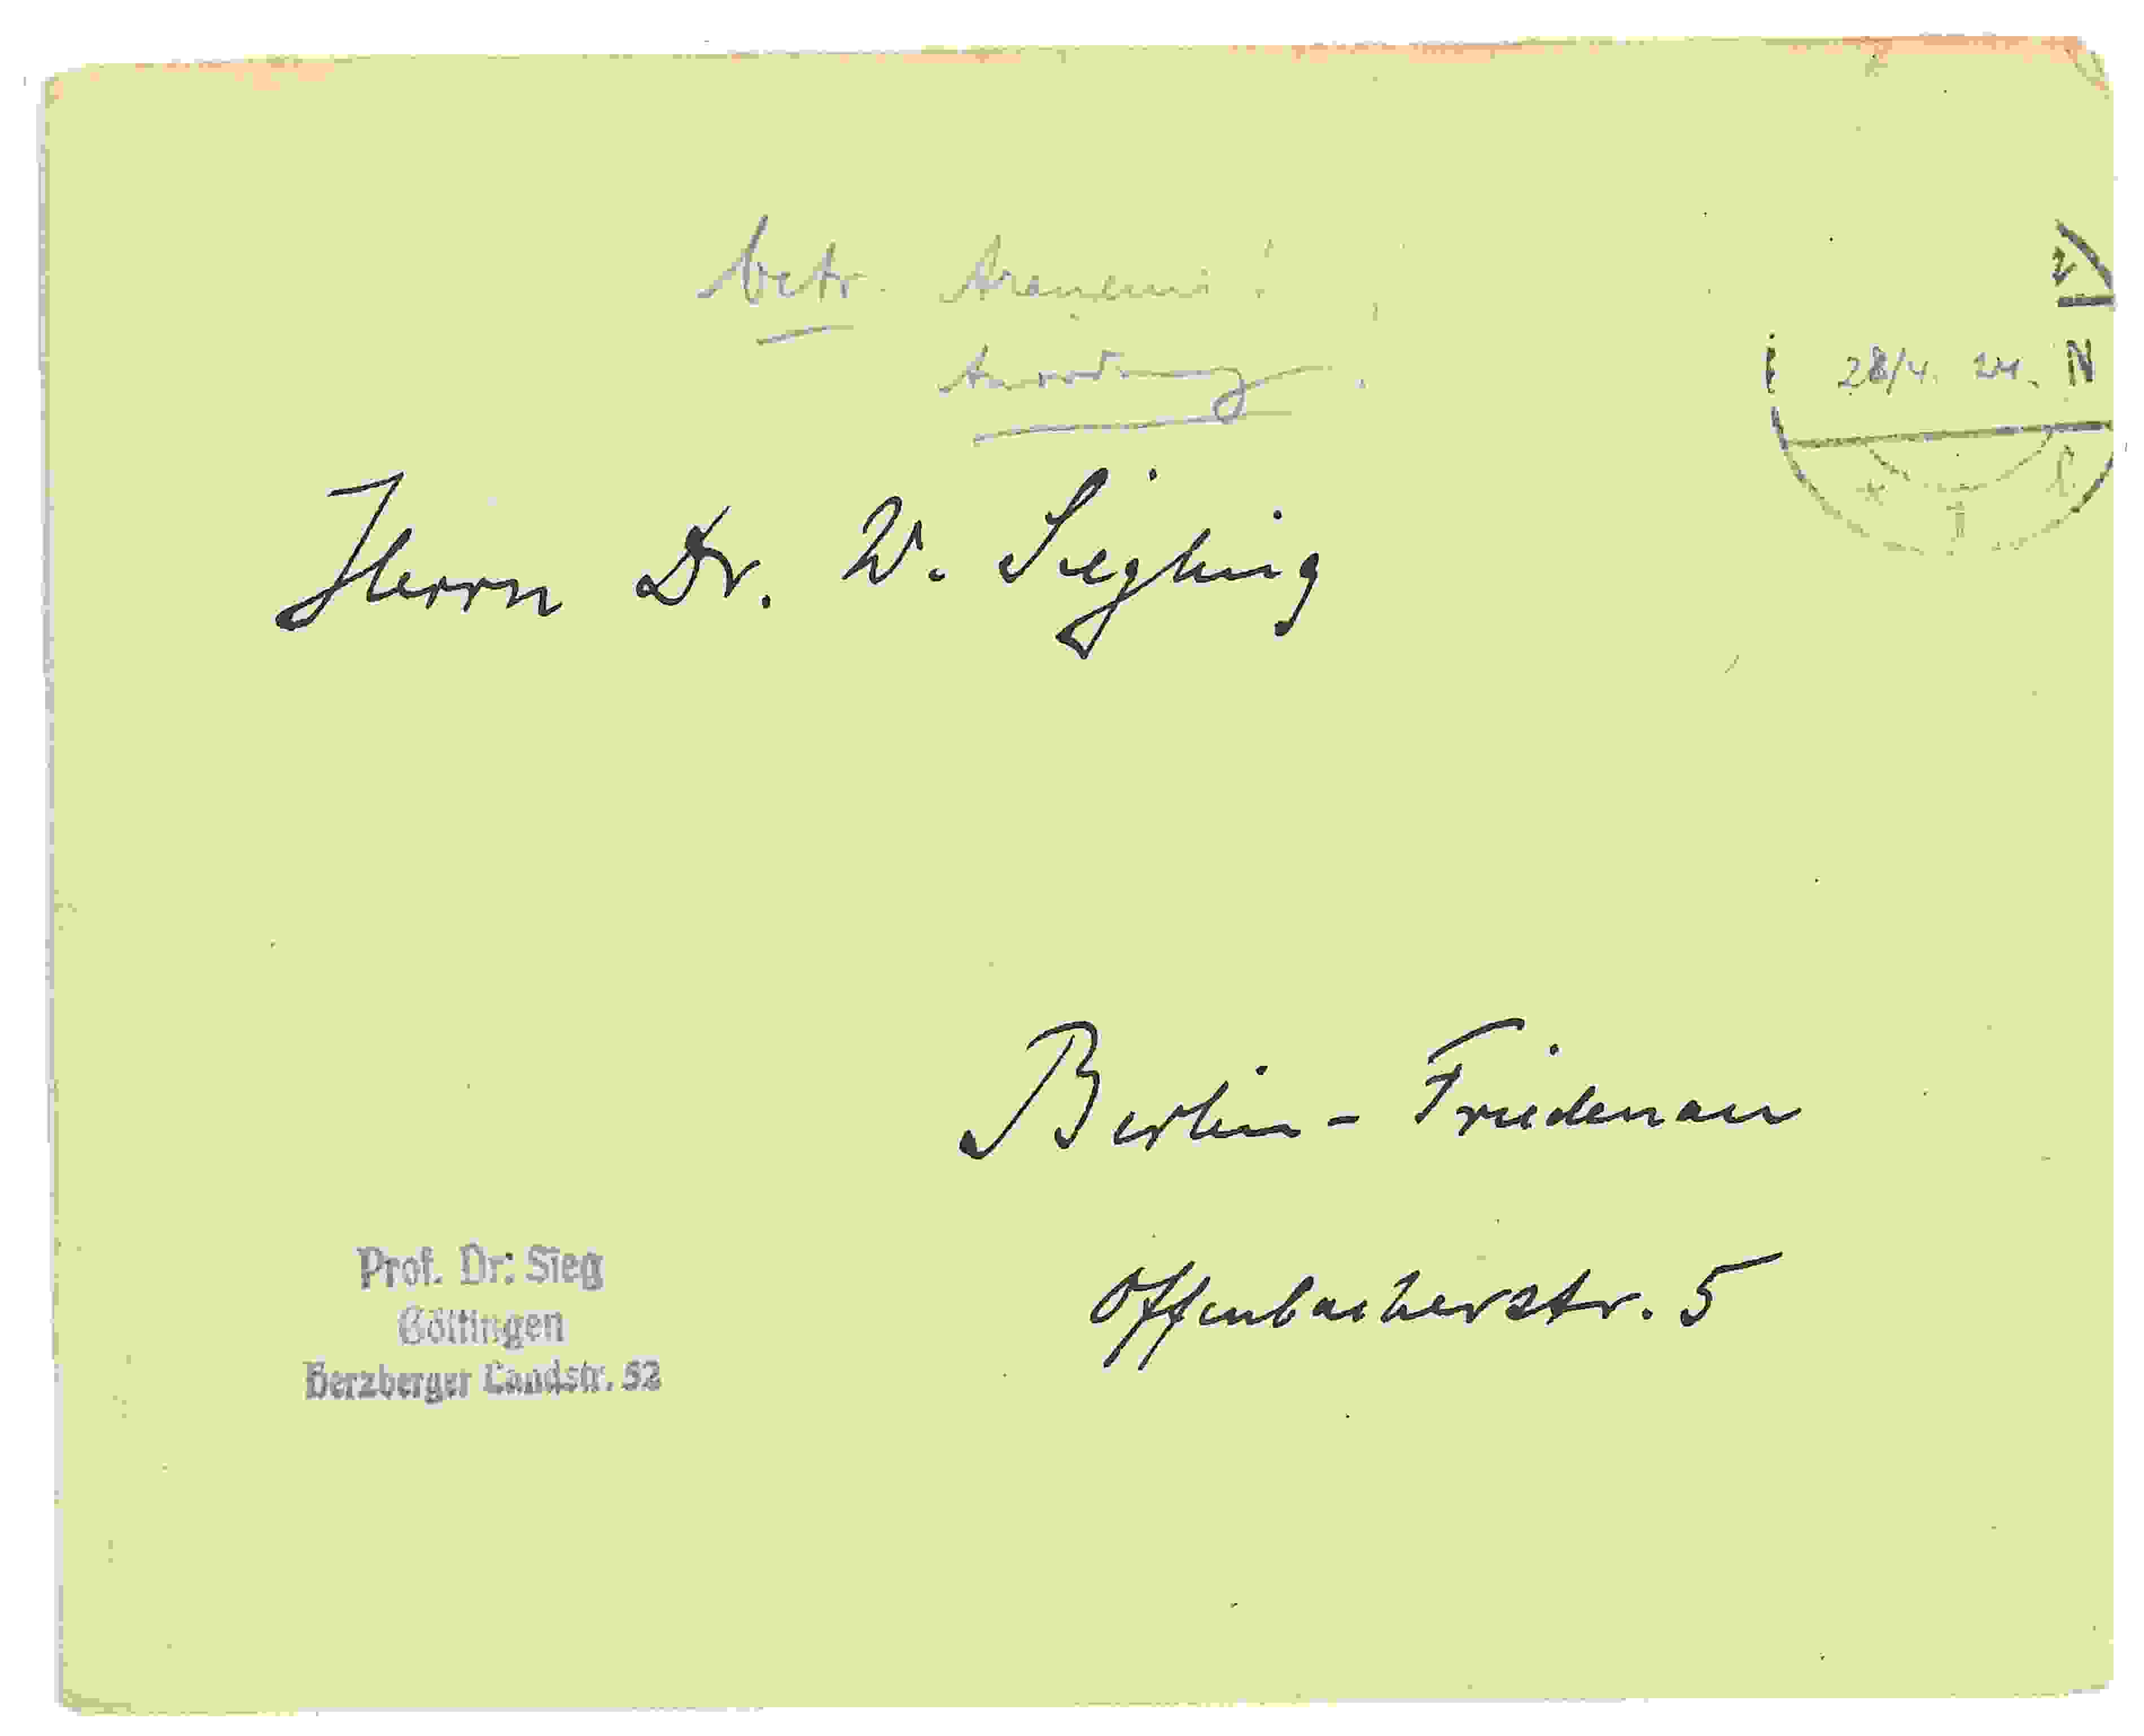 betr.
28/4. 24. N
Herrn Dr. W. Siegling
Berlin-Friedenau
Offenbacherstr. 5
Prof. Dr. Sieg
Göttingen
Herzberger Landstr. 52